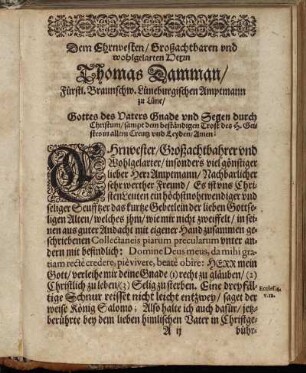 Dem Ehrnvesten/ Großachtbaren vnd
wohlgelarten Herrn
Thomas Damman/
Fürstl. Braunschw. Lüneburgischen Amptmann
zu Lüne/
Gottes des Vaters Gnade vnd Segen durch
Christum/ sampt dem beständigen Trost des H. Gei-
stes in allem Creutz vnd Leyden/ Amen/
EHrnvester, Großachtbahrer vnd
Wohlgelarter/ insonders viel günstiger
lieber Herr Amptmann/ Nachbarlicher
sehr werther Freund/ Es ist vns Chri-
sten Leuten ein höchstnohtwendiger vnd
seliger Seufftzer das kurtze Gebetlein der lieben Gottse-
ligen Alten/ welches jhm/ wie mir nicht zweiffelt/ in sei-
nen aus guter Andacht mit eigener Hand zusammen ge-
schriebenen Collectaneis piarum precularum vnter an-
dern mit befindlich: Domine Deus meus, da mihi gra-
tiam rectè credere, piè vivere, beatè obire: HErr mein
Gott/ verleihe mir deine Gnade (1) recht zu gläuben/ (2)
Christlich zu leben/ (3) Selig zu sterben. Eine dreyfäl-
tige Schnur reisset nicht leicht entzwey/ saget der
weise König Salomo. Also halte ich auch dafür/ jetz-
berührte bey dem lieben himlischen Vater in Christge-
Ecclesi. 4.
v. 12.
A ij
bühr-